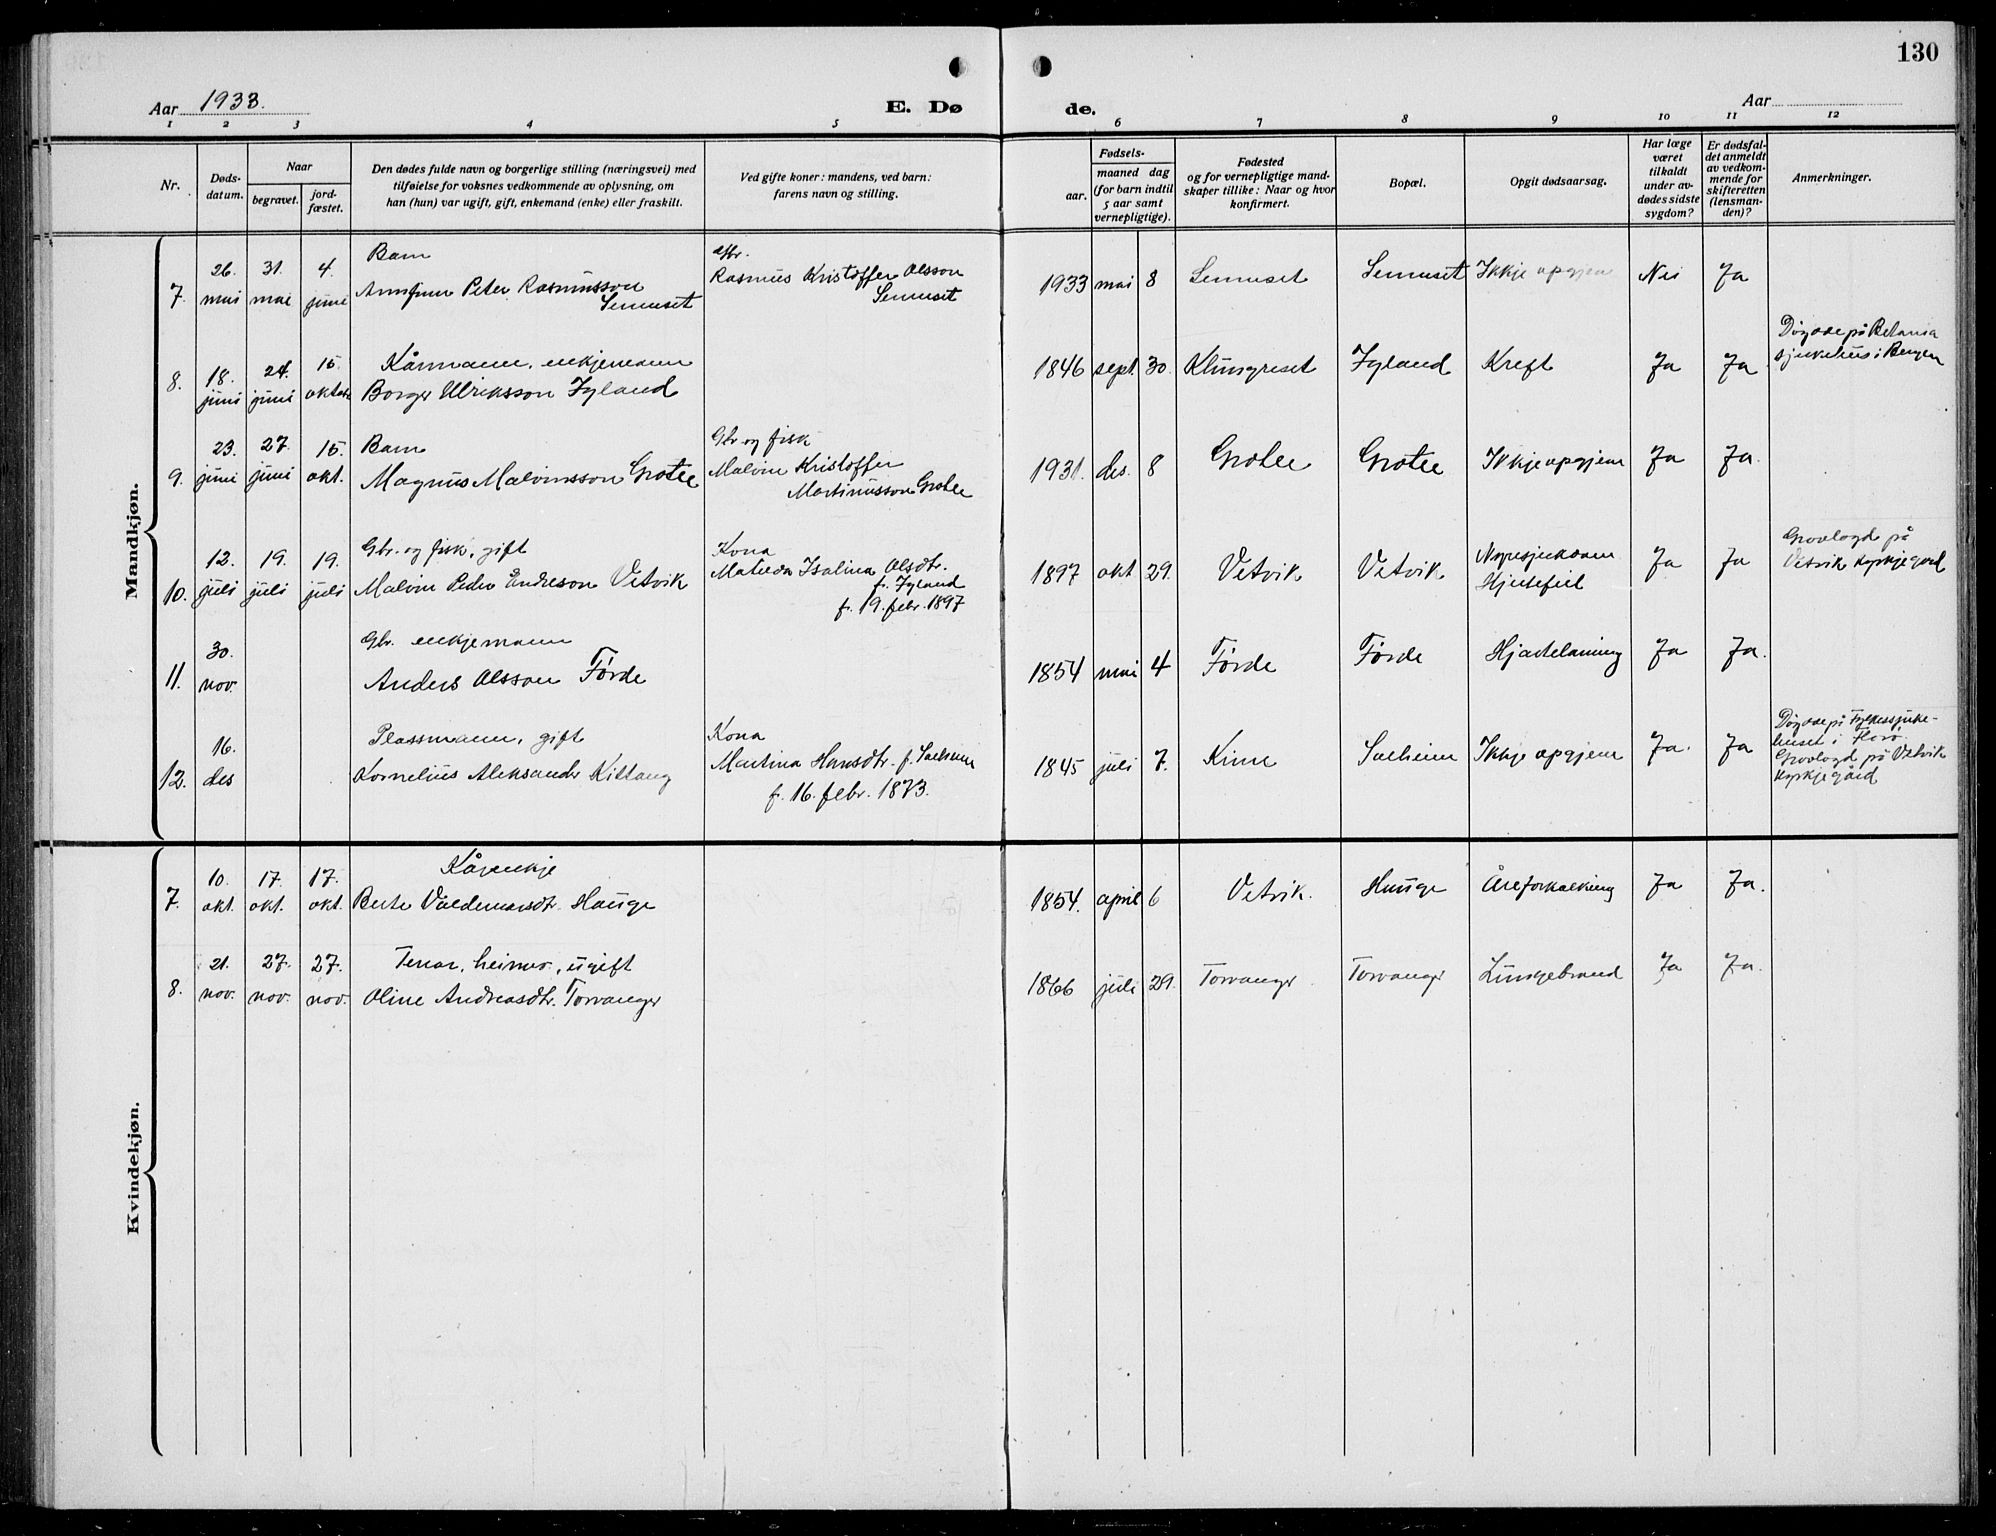 130
Aar 1933.
E. Dø
de.
Aar
1 2 3 4 5 6 7 8 9 10 11 12
Nr.
Døds-
datum.
Naar
begravet.
jord-
fæstet.
Den dødes fulde navn og borgerlige stilling (næringsvei) med
tilføielse for voksnes vedkommende av oplysning, om
han (hun) var ugift, gift, enkemand (enke) eller fraskilt.
Ved gifte koner: mandens, ved barn:
farens navn og stilling.
Fødsels-
aar.
maaned dag
(for barn indtil
5 aar samt
vernepligtige).
Fødested
og for vernepligtige mand-
skaper tillike: Naar og hvor
konfirmert.
Bopæl.
Opgit dødsaarsag.
Har læge
været
tilkaldt
under av-
dødes sidste
sygdom?
Er dødsfal-
det anmeldt
av vedkom-
mende for
skifteretten
(lensman-
den)?
Anmerkninger.
Mandkjøn.
26. 31. 4. Barn Gbr.
7. mai mai juni Arnfinn Peter Rasmusson Rasmus Kristoffer Olsson 1933 mai 8 Nei Ja
18. 24. 15. Kårmann, enkjemann
8. juni juni oktober Borger Ulriksson 1846 sept. 30. Kreft Ja Ja
Døydde på Betania
sjukehus i Bergen
23. 27. 15. Barn Gbr og fisk
9. juni juni okt. Magnus Malvinsson Grotle Malvin Kristoffer
Martinusson Grotle
1931. des. 8 Grotle Grotle Ikkje opgjeve Ja Ja.
12. 19. 19. Gbr. og fisk, gift Kona
10. juli juli juli Malvin Peder Endreson Vetvik Matilda Isalina Olsdtr.
f. 19. febr. 1897
1897 okt 29. Vetvik Vetvik Nyresjukdom
Hjartefeil
Ja Ja
Gravlagd på
Vetvik kyrkjegard
30. Gbr. enkjemann
11. nov. Anders Olsson Førde 1854 mai 4 Førde Førde Hjartelaming Ja Ja.
16. Plassmann, gift Kona
12. des Kornelius Aleksander Kittang Martina Hansdtr. f. Sælheim
f. 16. febr. 1873.
1845 juli 7. Kinn Sælheim Ikkje opgjeve Ja. Ja
Døydde på Fylkessjuke-
huset i Florø.
Gravlagd på Vetvik
kyrkjegård
Kvindekjøn.
10. 17. 17. Kårenkje
7. okt. okt. okt. Berte Valdemarsdtr. Hauge 1854. april 6 Vetvik. Hauge Åreforkalking Ja Ja.
21. 27. 27. ugift
8. nov. nov. nov. Oline Andreasdtr. Torvanger 1866 juli 29. Torvanger Torvanger Lungebrand Ja Ja.